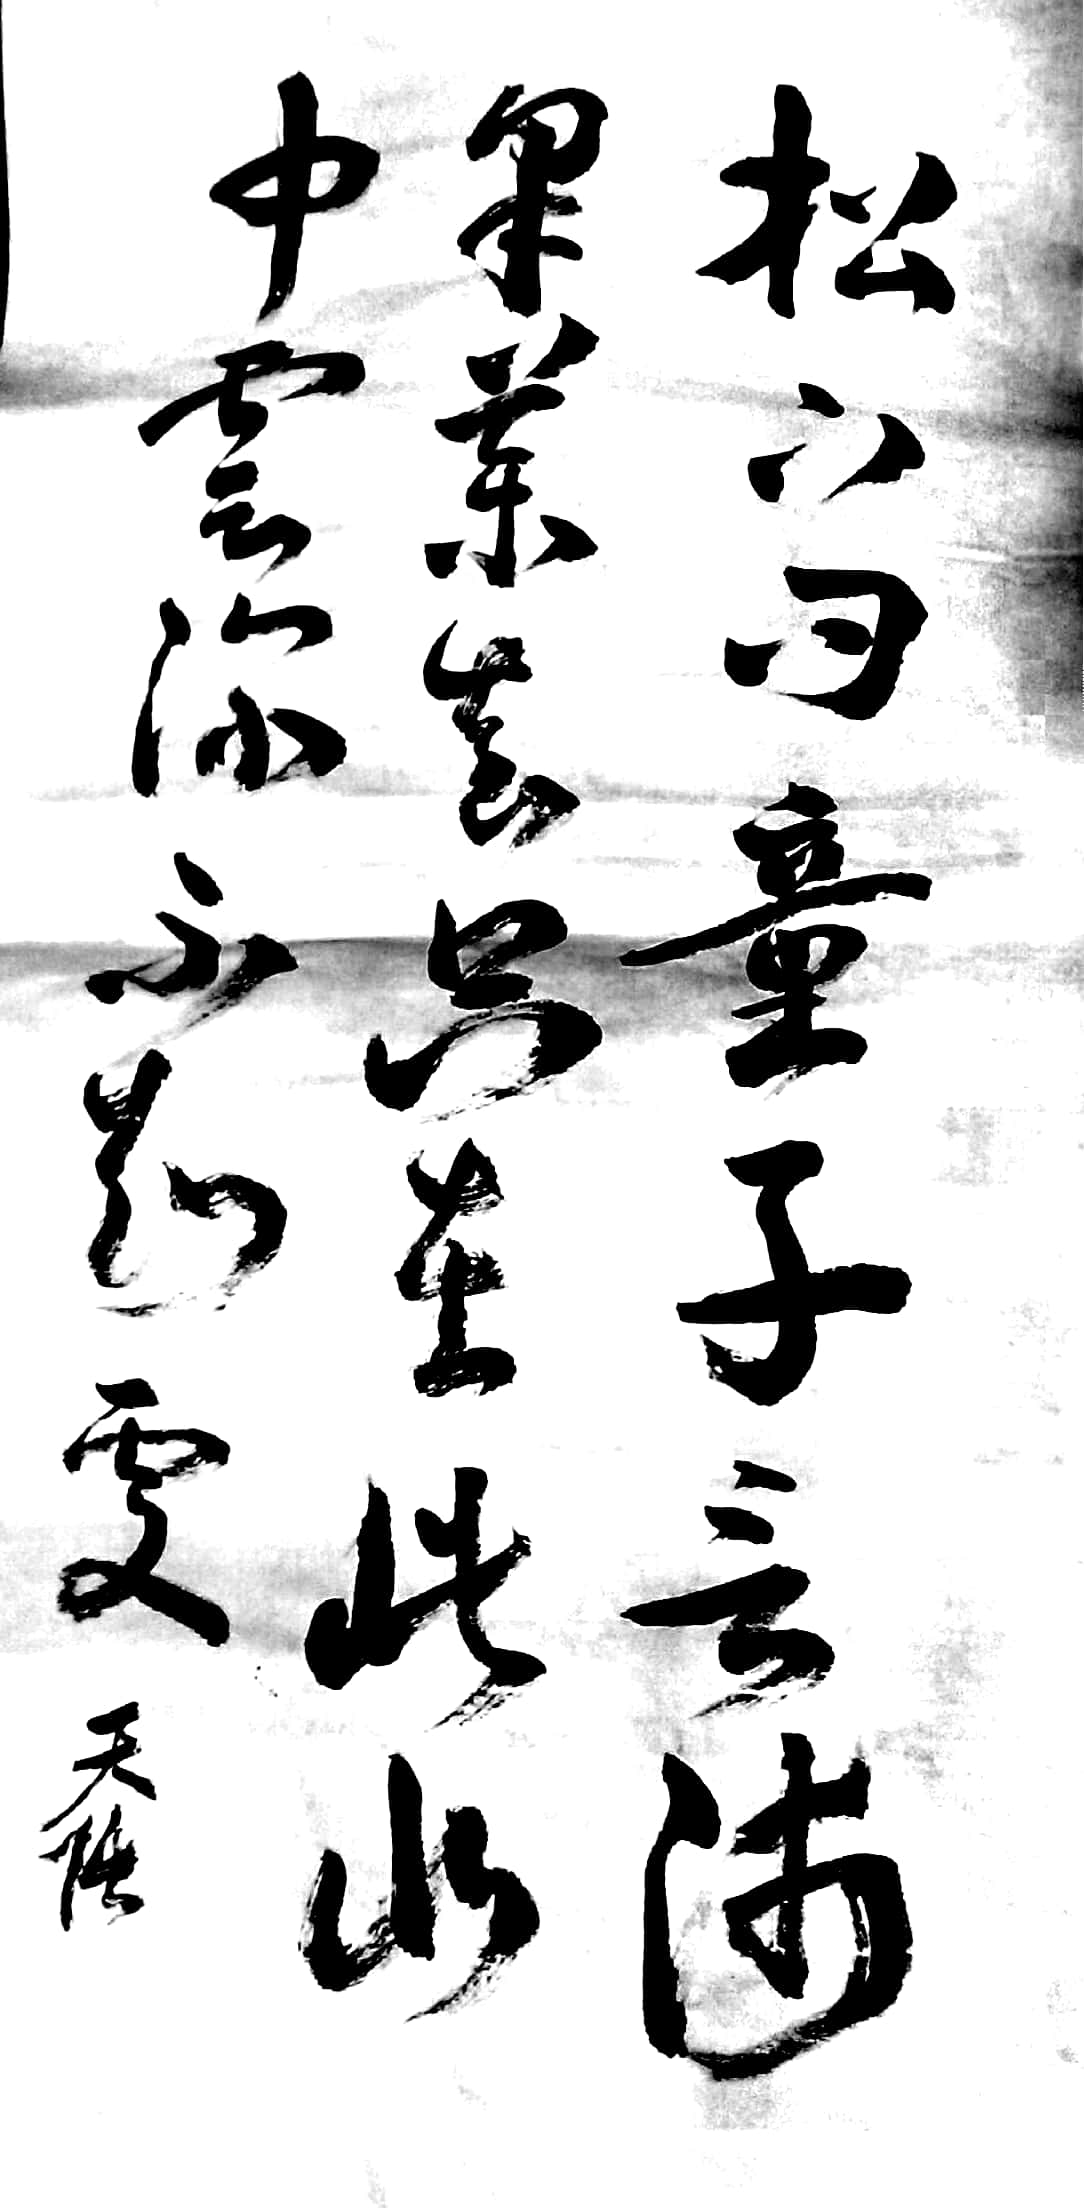 松下問童子言師
采藥去只在此山
中雲深不知處
天